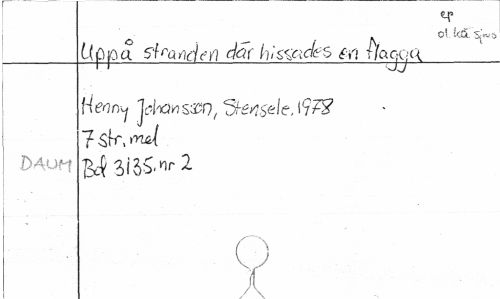 ep
ol. kä sjös
Uppå stranden där hissades en flagga
Henny Johansson, Stensele, 1978
7 str. mel
DAUM Bd 3135. nr 2